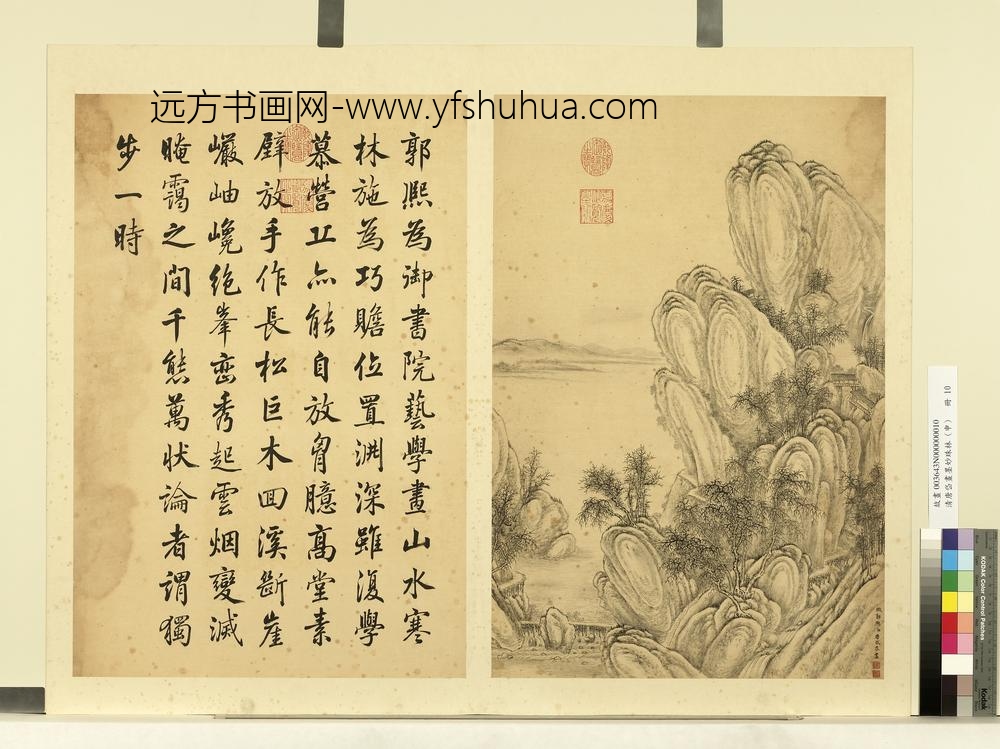 远方书画网-www.yfshuhua.com
郭熙為御書院藝學畫山水寒
林施為巧贍位置淵深雖復學
慕營丘亦能自放胷臆高堂素
壁放手作長松巨木回溪斷崖
巖岫巉絕峯巒秀起雲烟變滅
晻靄之間千態萬狀論者謂獨
步一時
故畫 003643N000000010
清唐岱畫墨妙珠林（申） 冊 10
KODAK Color Control Patches
Kodak